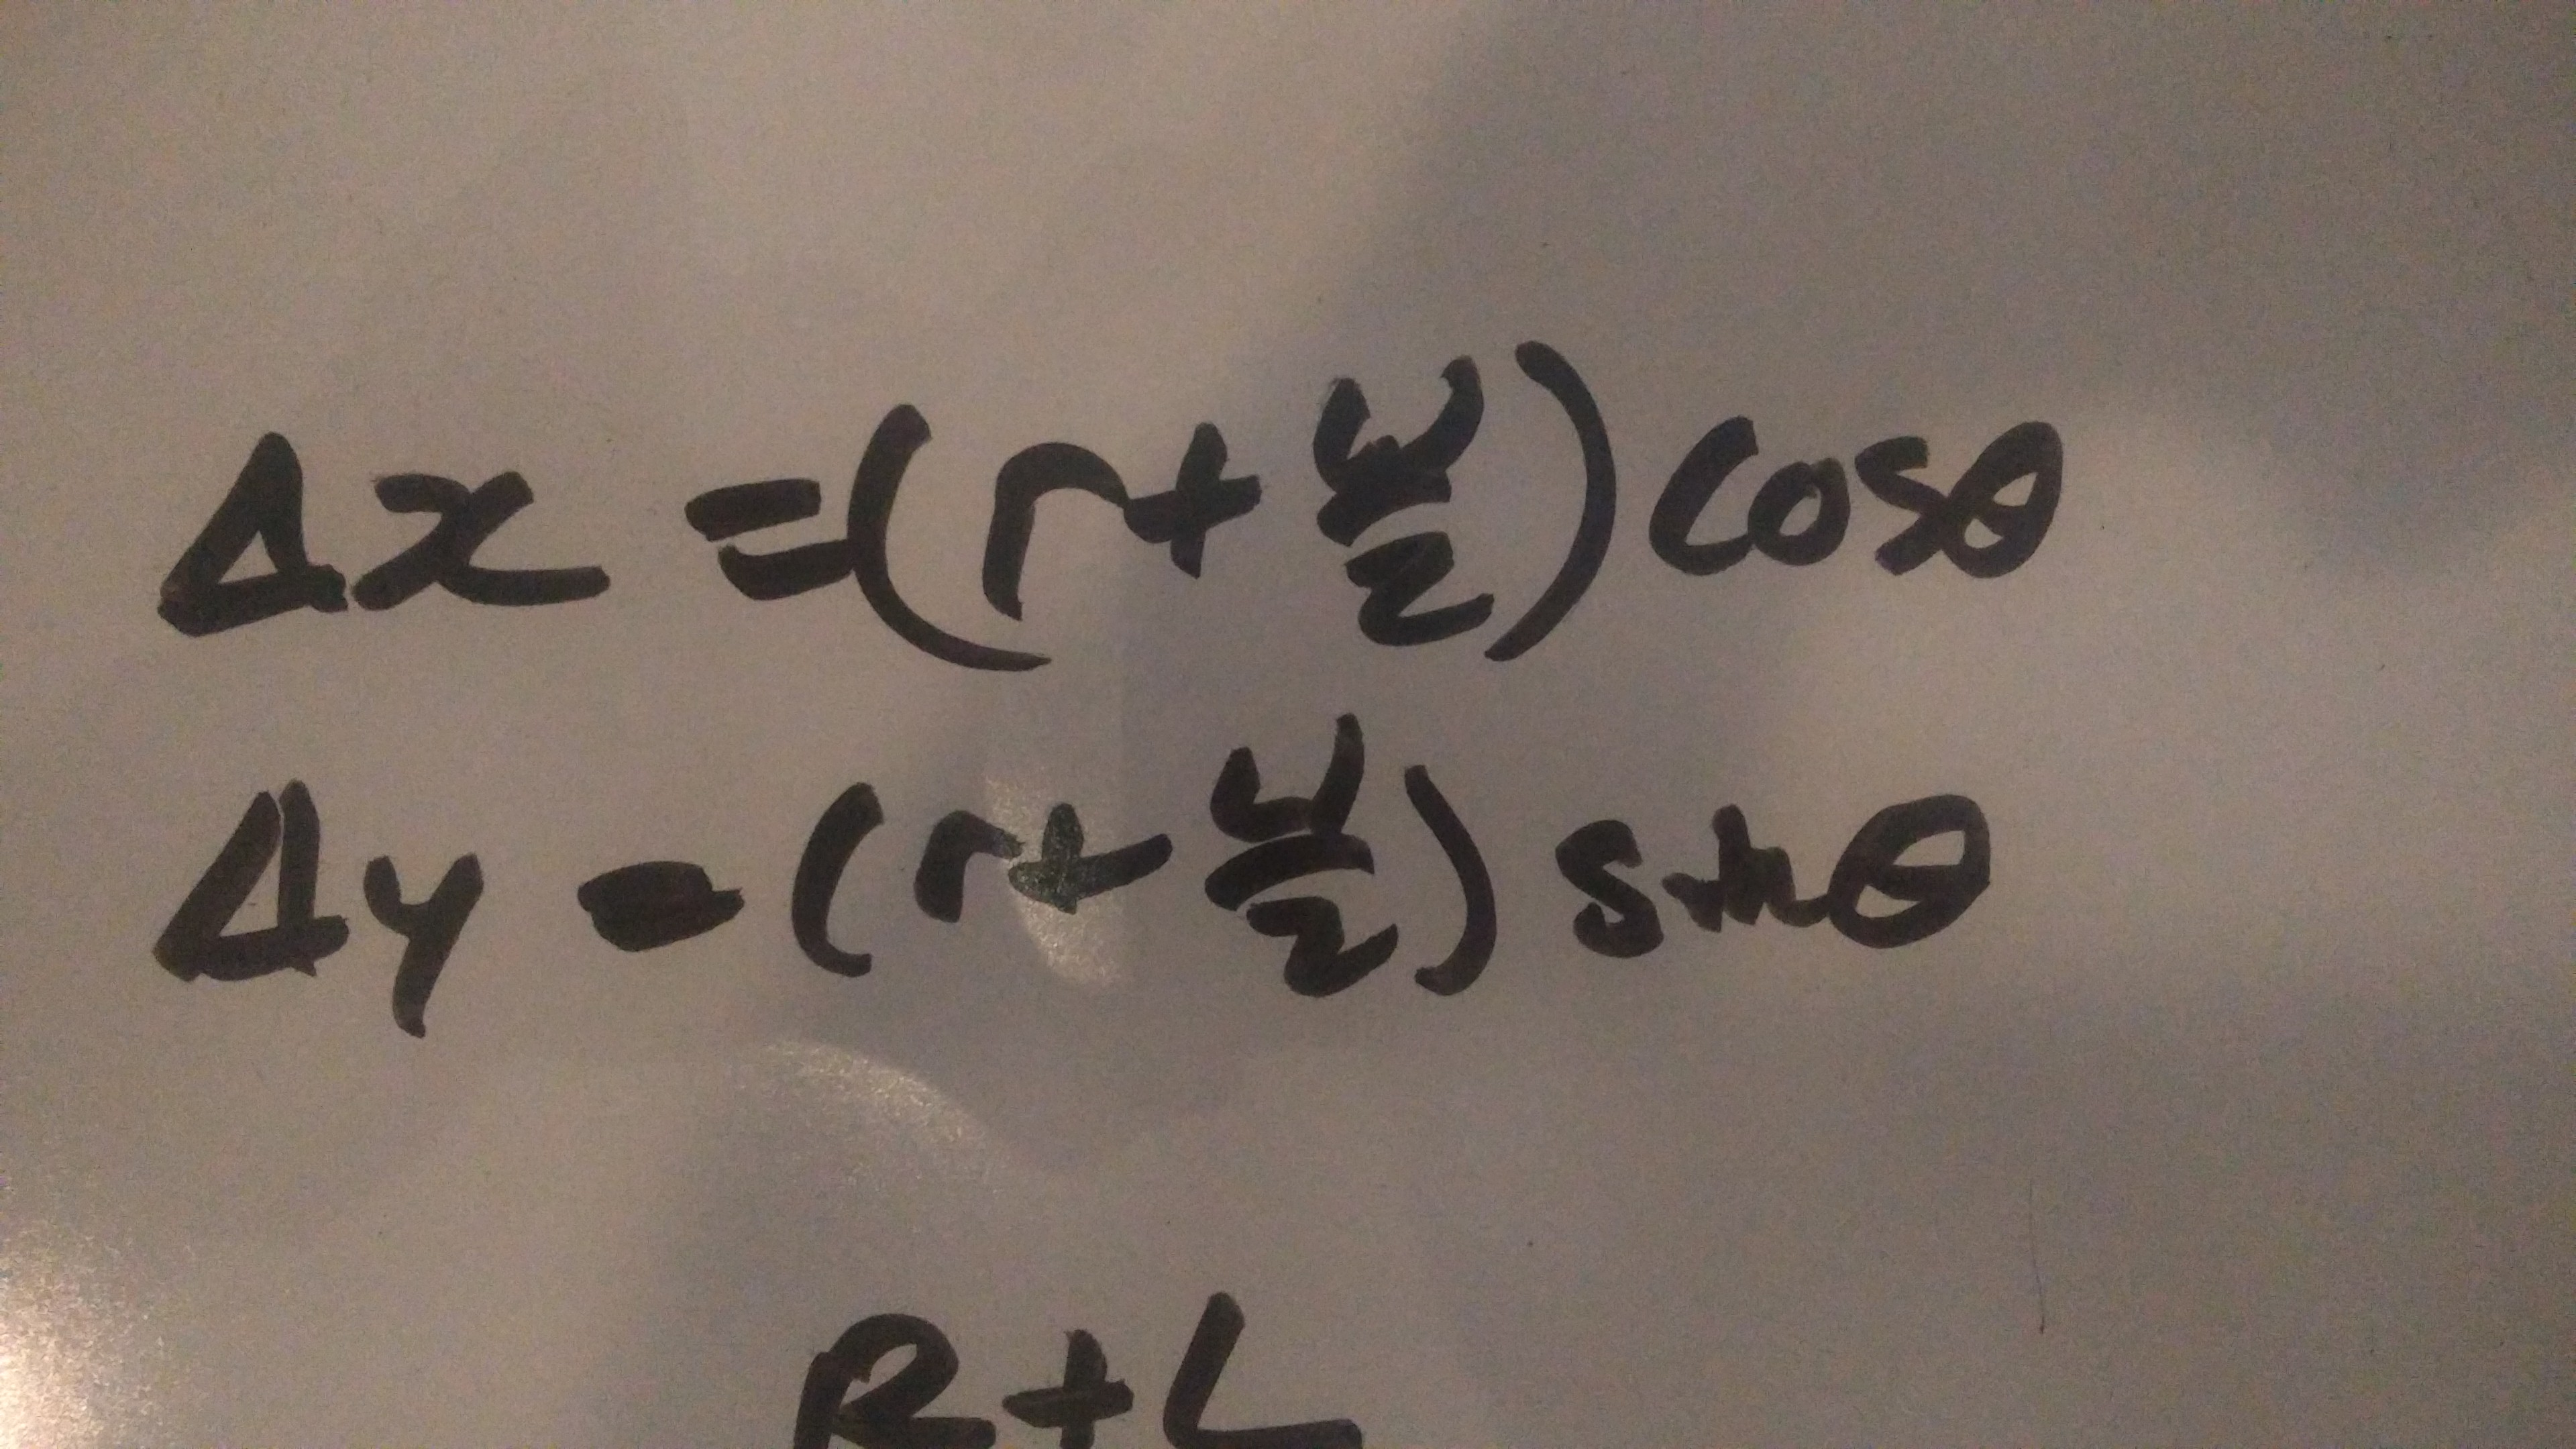 Δx = (r + h/2) cosθ
Δy = (r + h/2) sinθ
R + L